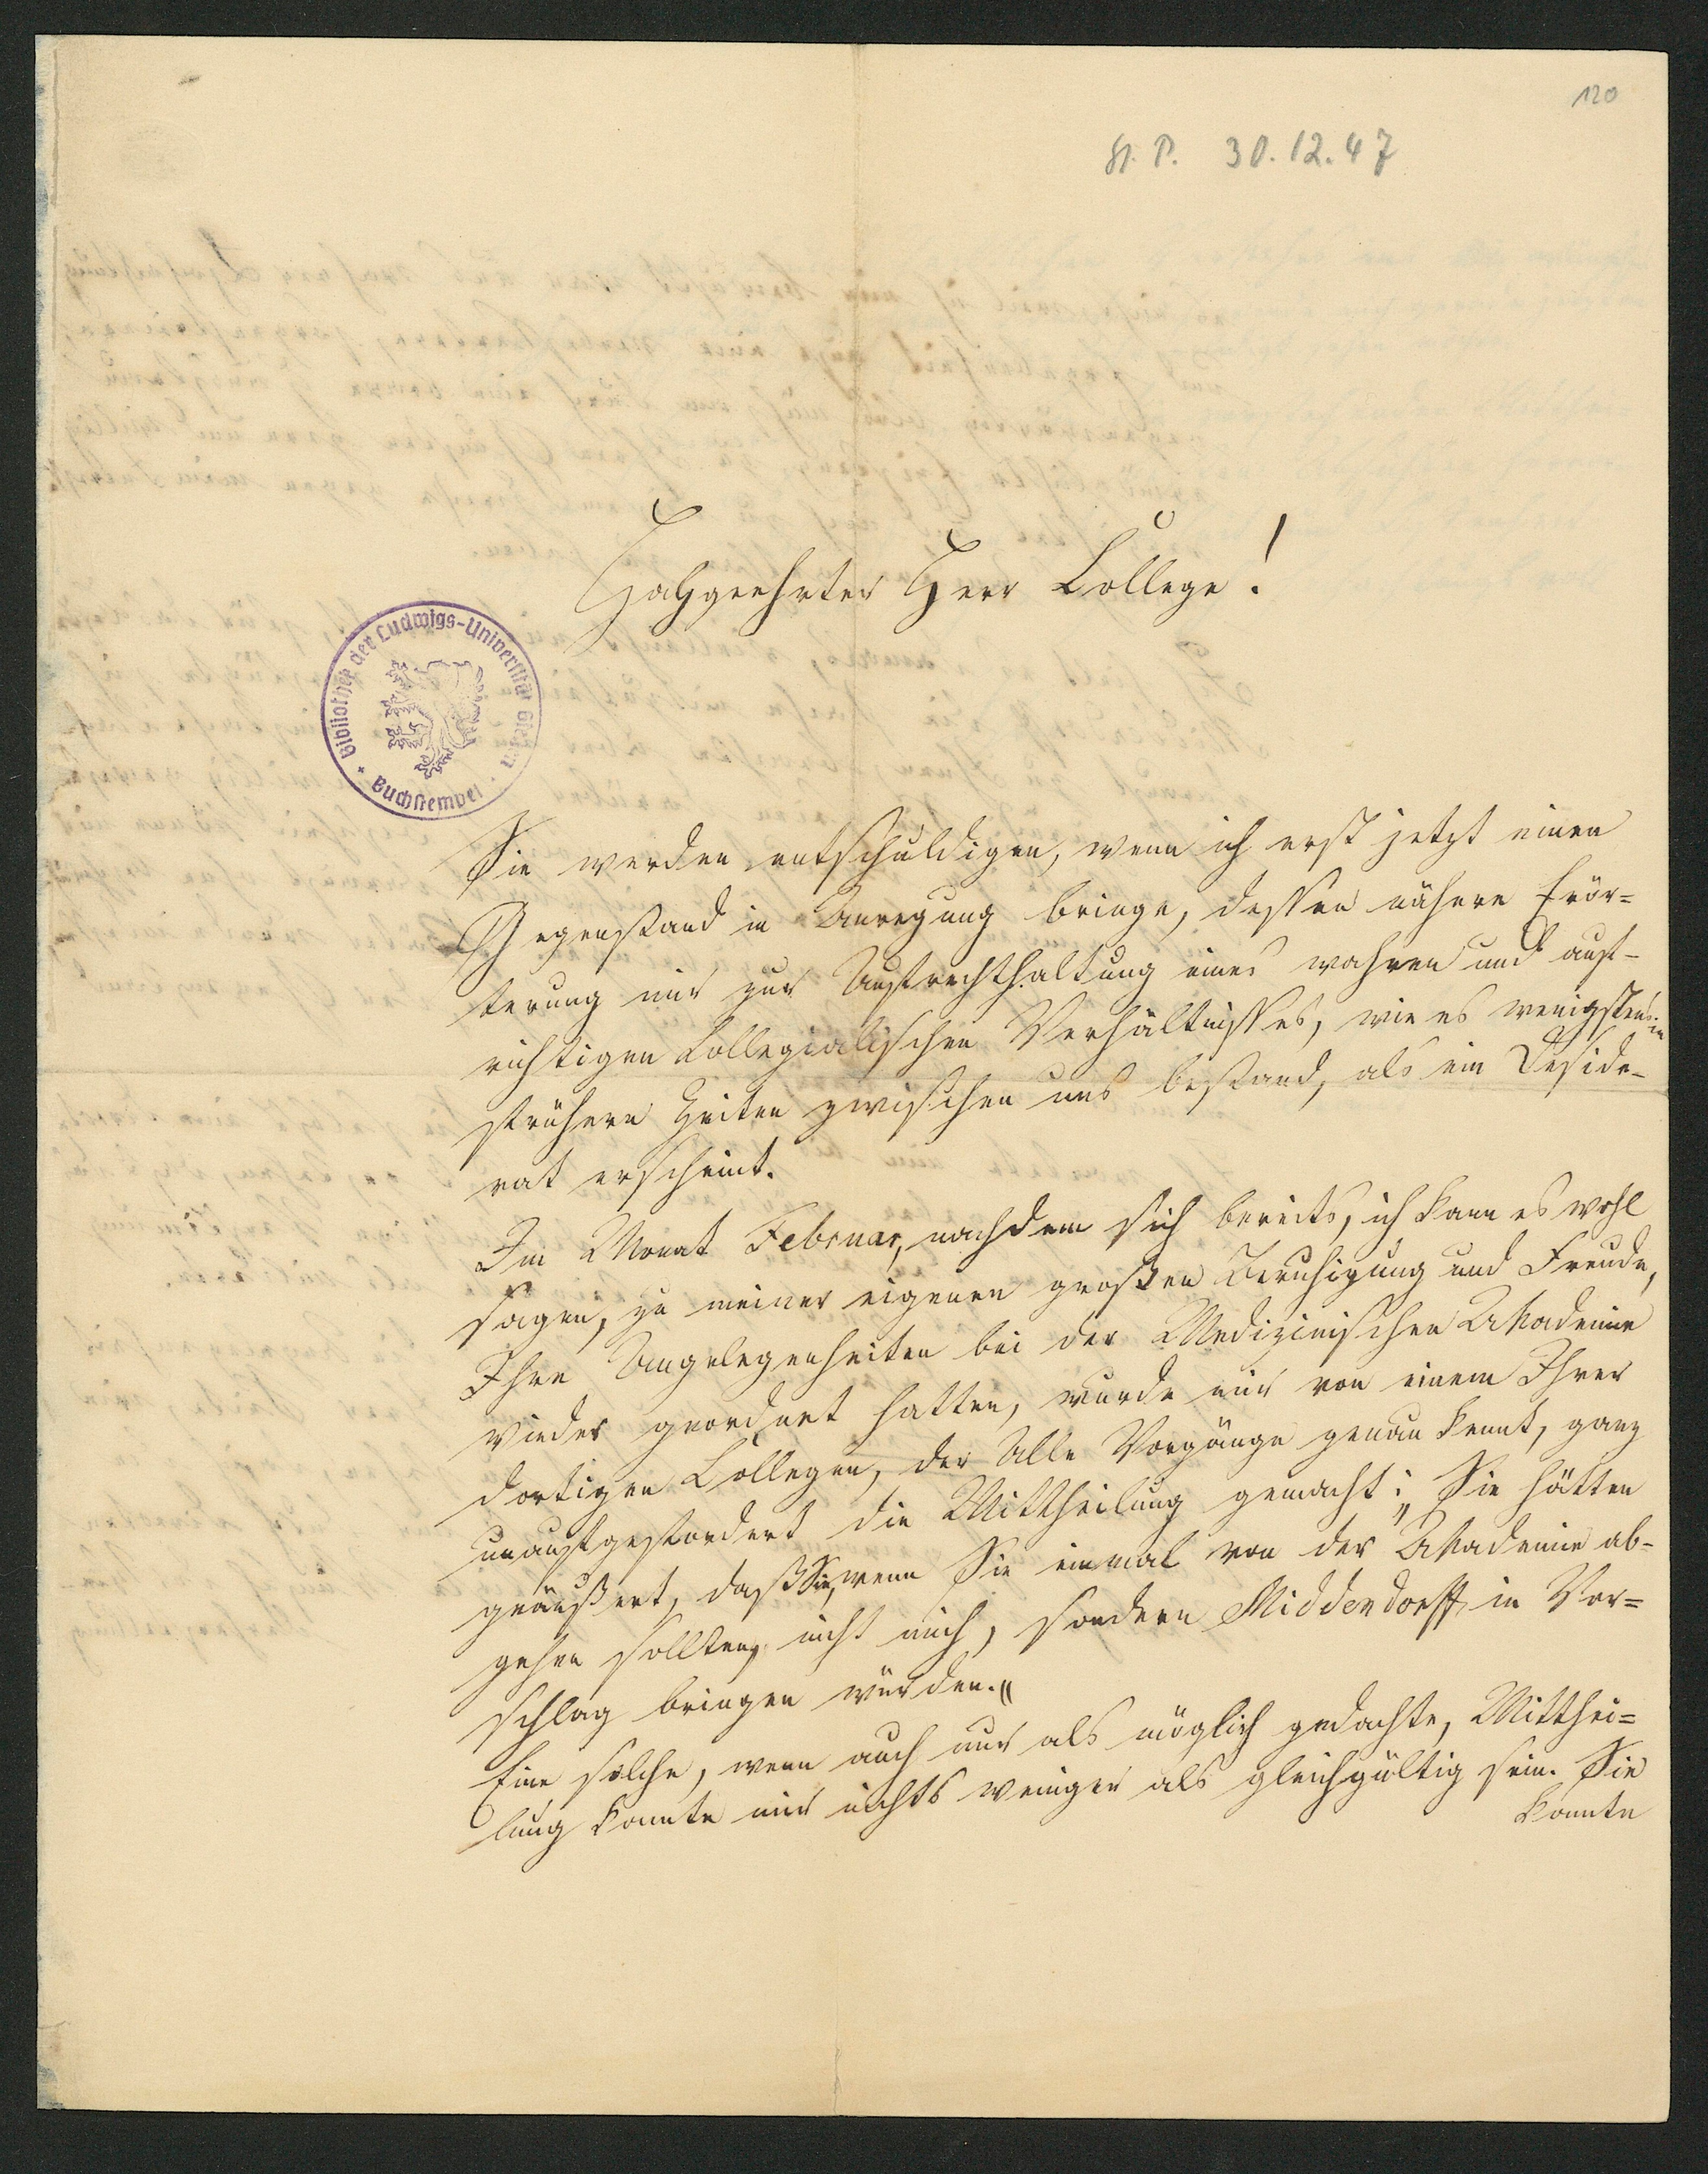 120
St. P. 30.12.47
Hochgeehrter Herr College!
Bibliothek der Ludwigs-Universität Gießen
Buchstempel
Sie werden entschuldigen, wenn ich erst jetzt einen
Gegenstand in Anregung bringe, dessen nähere Erör=
terung mir zur Aufrechthaltung eines wahren und auf-
richtigen Collegialischen Verhältnisses, wie es wenigstens in
frühern Zeiten zwischen uns bestand, als ein Deside-
rat erscheint.
Im Monat Februar, nachdem sich bereits, ich kann es wohl
sagen, zu meiner eigenen großen Beruhigung und Freude,
Ihre Angelegenheiten bei der Medizinischen Akademie
wieder geordnet hatten, wurde mir von einem Ihrer
dortigen Collegen, der Alle Vorgänge genau kennt, ganz
unaufgefordert die Mittheilung gemacht: „Sie hätten
geäußert, daß Sie, wenn Sie einmal von der Akademie ab-
gehen sollten, nicht mich, sondern Middendorff in Vor=
schlag bringen würden.“
Eine solche, wenn auch nur als möglich gedachte, Mitthei=
lung konnte mir nichts weniger als gleichgültig sein. Sie
konnte